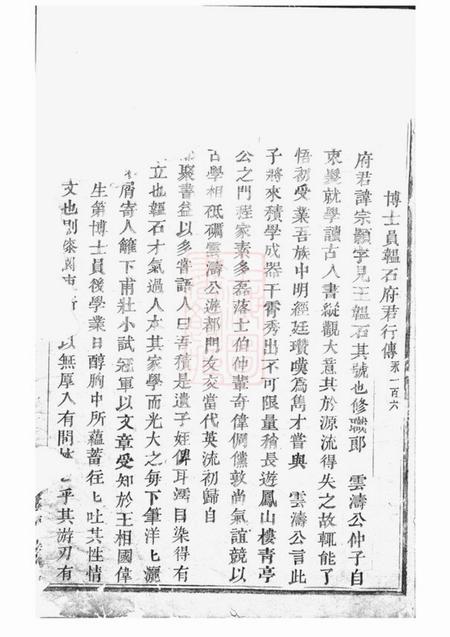 博士員韞石府君行傳 永一百六
府君諱宗顥字見王韞石其號也修職郎 雲濤公仲子自
束髮就學讀古人書縱觀大意其於源流得失之故輒能了
悟初受業吾族中明經廷瓚嘆為雋才嘗與 雲濤公言此
子將來積學成器干霄秀出不可限量稍長遊鳳山樓青亭
公之門程家素多磊落士伯仲輩奇偉倜儻敦尚氣誼競以
古學相砥礪雲濤公遊都門友交當代英流初歸自
聚書益以多嘗語人曰吾積是遺子姪俾耳濡目染得有
立也韞石才氣過人本其家學而光大之每下筆洋匕灑
屑寄人籬下甫壯小試冠軍以文章受知於王相國偉
生第博士員後學業日醇胸中所蘊蓄往匕吐其性情
文也別 以無厚入有間 乎其游刃有